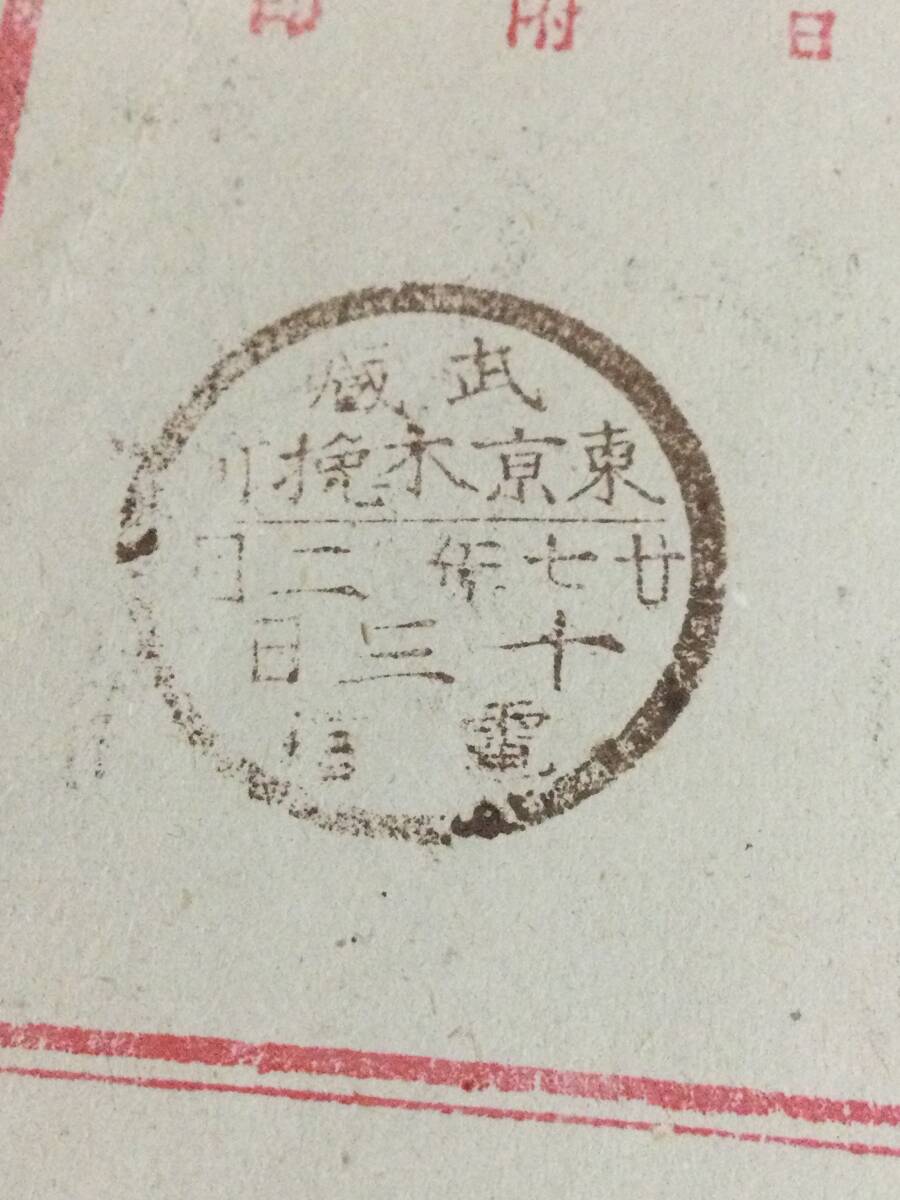 日附印
武蔵
東京木挽町
廿七年二月
十三日
電信